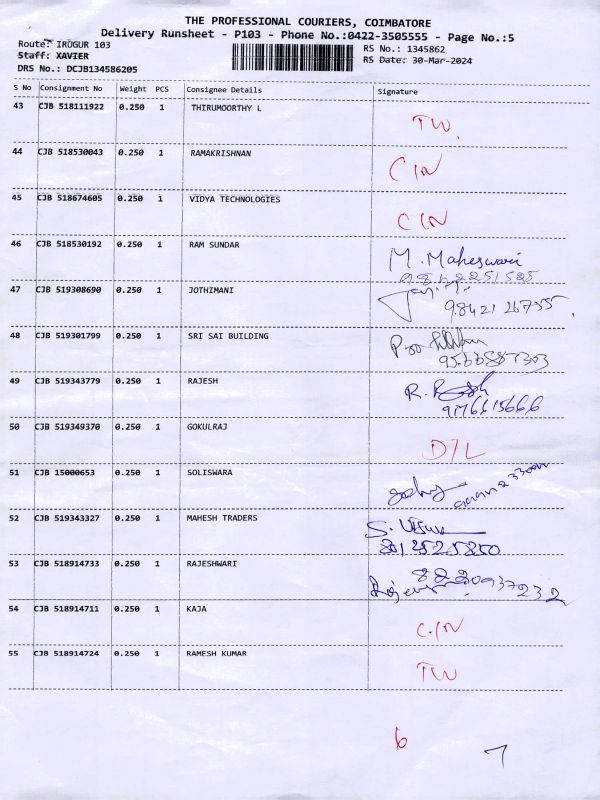 THE PROFESSIONAL COURIERS, COIMBATORE
Delivery Runsheet - P103 - Phone No.:0422-3505555 - Page No.:5
Route: IRUGUR 103
RS No.: 1345862
Staff: XAVIER
RS Date: 30-Mar-2024
DRS No.: DCJB134586205
S No Consignment No Weight PCS Consignee Details Signature
43 CJB 518111922 0.250 1 THIRUMOORTHY L TW.
44 CJB 518530043 0.250 1 RAMAKRISHNAN C/N
45 CJB 518674605 0.250 1 VIDYA TECHNOLOGIES C/N
46 CJB 518530192 0.250 1 RAM SUNDAR M. Maheswari
47 CJB 519308690 0.250 1 JOTHIMANI
48 CJB 519301799 0.250 1 SRI SAI BUILDING
49 CJB 519343779 0.250 1 RAJESH
50 CJB 519349370 0.250 1 GOKULRAJ D/L
51 CJB 15000653 0.250 1 SOLISWARA
52 CJB 519343327 0.250 1 MAHESH TRADERS
8012525850
53 CJB 518914733 0.250 1 RAJESHWARI
54 CJB 518914711 0.250 1 KAJA C/N
55 CJB 518914724 0.250 1 RAMESH KUMAR TW
6
7